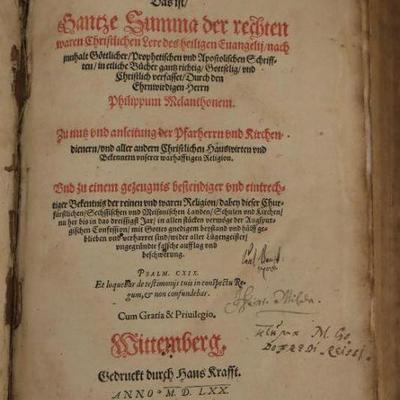 Das ist/
Gantze Summa der rechten
waren Christlichen Lere des heiligen Euangelij/nach
innhalt Göttlicher/Prophetischen vnd Apostolischen Schriff-
ten/in etliche Bücher gantz richtig/Gottselig/vnd
Christlich verfasset/Durch den
Ehrnwirdigen Herrn
Philippum Melanthonem.
Zu nutz vnd anleitung der Pfarherrn vnd Kirchen-
dienern/vnd aller andern Christlichen Hauswirten vnd
Bekennern vnserer warhafftigen Religion.
Vnd zu einem gezeugnis bestendiger vnd eintrech-
tiger Bekentnis der reinen vnd waren Religion/dabey dieser Chur-
fürstlichen/Sechssischen vnd Meissnischen Landen/Schulen vnd Kirchen/
nu her bis in das dreissigst Jar/in allen stücken vermöge der Augspur-
gischen Confession/mit Gottes gnedigem beystand vnd hülff ge-
blieben vnd verharret sind/wider aller Lügengeister/
vngegründte falsche aufflag vnd
beschwerung.
PSALM. CXIX.
Et loquebar de testimonijs tuis in conspectu Re-
gum, & non confundebar.
Cum Gratia & Priuilegio.
Wittemberg,
Gedruckt durch Hans Krafft.
ANNO M. D. LXX.